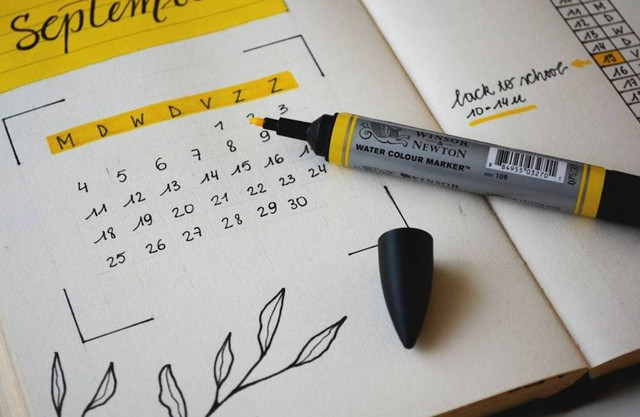 Septem
M D W D V Z Z
1 3
4 5 6 7 8 9
11 12 13 14 15 16
18 19 20 21 22 23 24
25 26 27 28 29 30
back to school
10-14u
11 M
12
13
14
15
16
WINSOR
& NEWTON
WATER COLOUR MARKER™